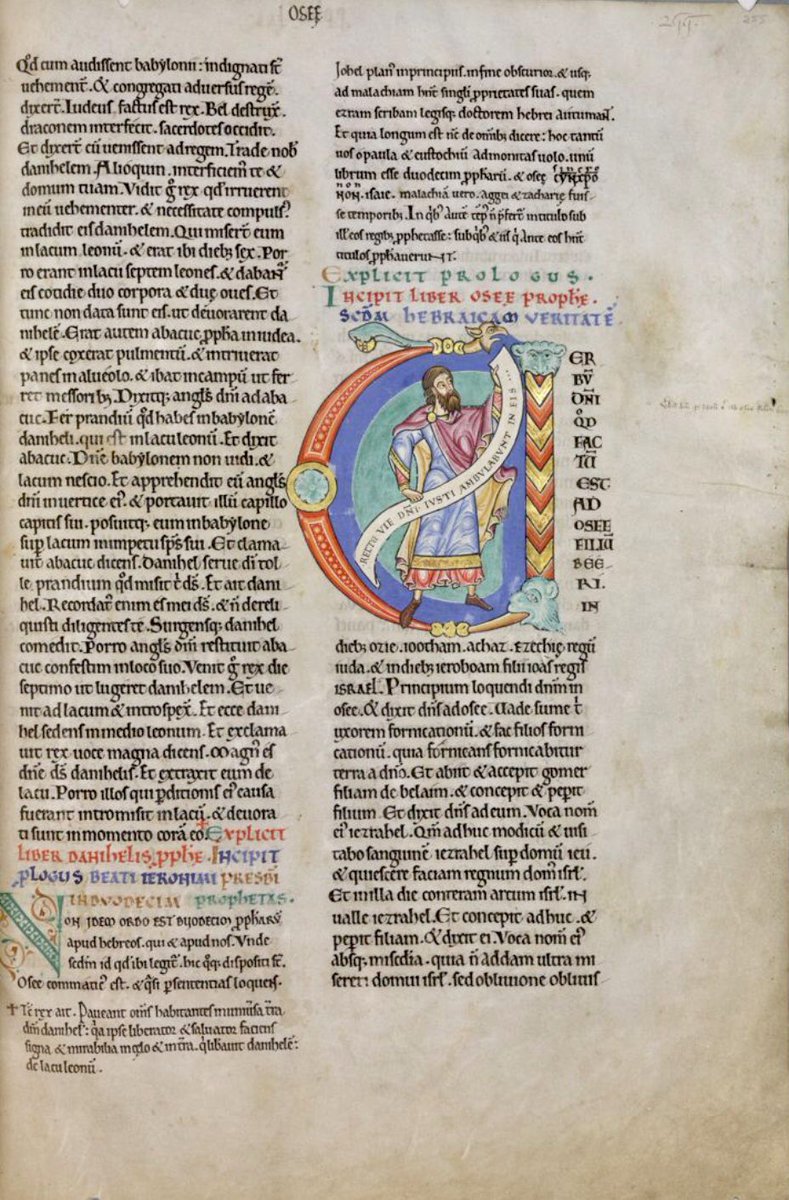 OSEE
Qd cum audissent babylonii: indignati st
uehement. & congregati aduersus rege.
dixer. Iudeus factus est rex. Bel destrux.
draconem interfecit. sacerdotes occidit.
Et dixer cu uenissent ad regem. Trade nob
danihelem. Alioquin. interficiem te &
domum tuam. Vidit g rex qd irruerent
in eu uehementer. & necessitate compuls
tradidit eis danihelem. Qui miser eum
in lacum leonu. & erat ibi dieb sex. Por
ro erant in lacu septem leones. & dabant
eis cotidie duo corpora & due oues. Et
tunc non data sunt eis. ut deuorarent da
nihele. Erat autem abacuc ppha in iudea.
& ipse coxerat pulmentu. & intriuerat
panes in alueolo. & ibat in campu ut fer
ret messorib. Dixitq; angls dni ad aba
cuc. Fer prandiu qd habes in babylone
daniheli. qui est in lacu leonu. Et dixit
abacuc. Dne babylonem non uidi. &
lacum nescio. Et apprehendit eu angls
dni in uertice ei. & portauit illu capillo
capitis sui. posuitq; eum in babylone
sup lacum in impetu sps sui. Et clama
uit abacuc dicens. Danihel serue di tol
le prandium qd misit t ds. Et ait dani
hel. Recordat enim es mei ds. & n dereli
quisti diligentes te. Surgensq; danihel
comedit. Porro angls dni restituit aba
cuc confestim in loco suo. Venit g rex die
septimo ut lugeret danihelem. Et ue
nit ad lacum & introspex. Et ecce dani
hel sedens in medio leonum. Et exclama
uit rex uoce magna dicens. Magn es
dne ds danihelis. Et extraxit eum de
lacu. Porro illos qui pditionis ei causa
fuerant intromisit in lacu. & deuora
ti sunt in momento cora eo. Explicit
liber danihelis pphe. Incipit
plogus beati ieronimi presbi
in duodecim prophetas.
Non idem ordo est duodecim ppharu
apud hebreos. qui & apud nos. Vnde
sedm id qd ibi legit. hic qq; dispositi st.
Osee commatic est. & qsi p sententias loquens.
Te rex ait. Paueant oms habitantes in uniusa tra
dm danihel: qa ipse liberator & saluator faciens
signa & mirabilia in celo & in tra. q libauit danihele:
de lacu leonu.
Johel plan in principiis. in fine obscurior. & usq;
ad malachiam hnt singli pprietates suas. quem
ezram scribam legisq; doctorem hebrei autumant.
Et quia longum est nc de omib dicere: hoc tantu
uos o paula & eustochiu admonitas uolo. unu
librum esse duodecim ppharu. & osee CYNXPO
NON. isaie. malachia uero. aggei & zacharie fuis
se temporib. In qb aute tep n pfert in titulo sub
ill eos regib pphetasse: sub qb & hi q ante eos hnt
titulos pphauerunt.
Explicit prologus.
Incipit liber Osee prophe.
scdm hebraicam veritate
RECTE VIE DNI. IVSTI AMBVLABVNT IN EIS
ER
BU
DNI
QD
FAC
TU
EST
AD
OSEE
FILIU
BEE
RI.
IN
dieb ozie. ioatham. achaz. ezechie regu
iuda. & in dieb ieroboam filii ioas regis
ISRAEL. Principium loquendi dnm in
osee. & dixit dns ad osee. Uade sume t
uxorem fornicationu. & fac filios forni
cationu. quia fornicans fornicabitur
terra a dno. Et abiit & accepit gomer
filiam debelaim. & concepit & pepit
filium. Et dixit dns ad eum. Voca nom
ei iezrahel. Qm adhuc modicu & uisi
tabo sanguine iezrahel sup domu ieu.
& quiescere faciam regnum dom isrl.
Et in illa die conteram arcum isrl. in
ualle iezrahel. Et concepit adhuc. &
pepit filiam. & dixit ei. Voca nom ei
absq; miscdia. quia n addam ultra mi
sereri domui isrl. sed obliuione obliuis